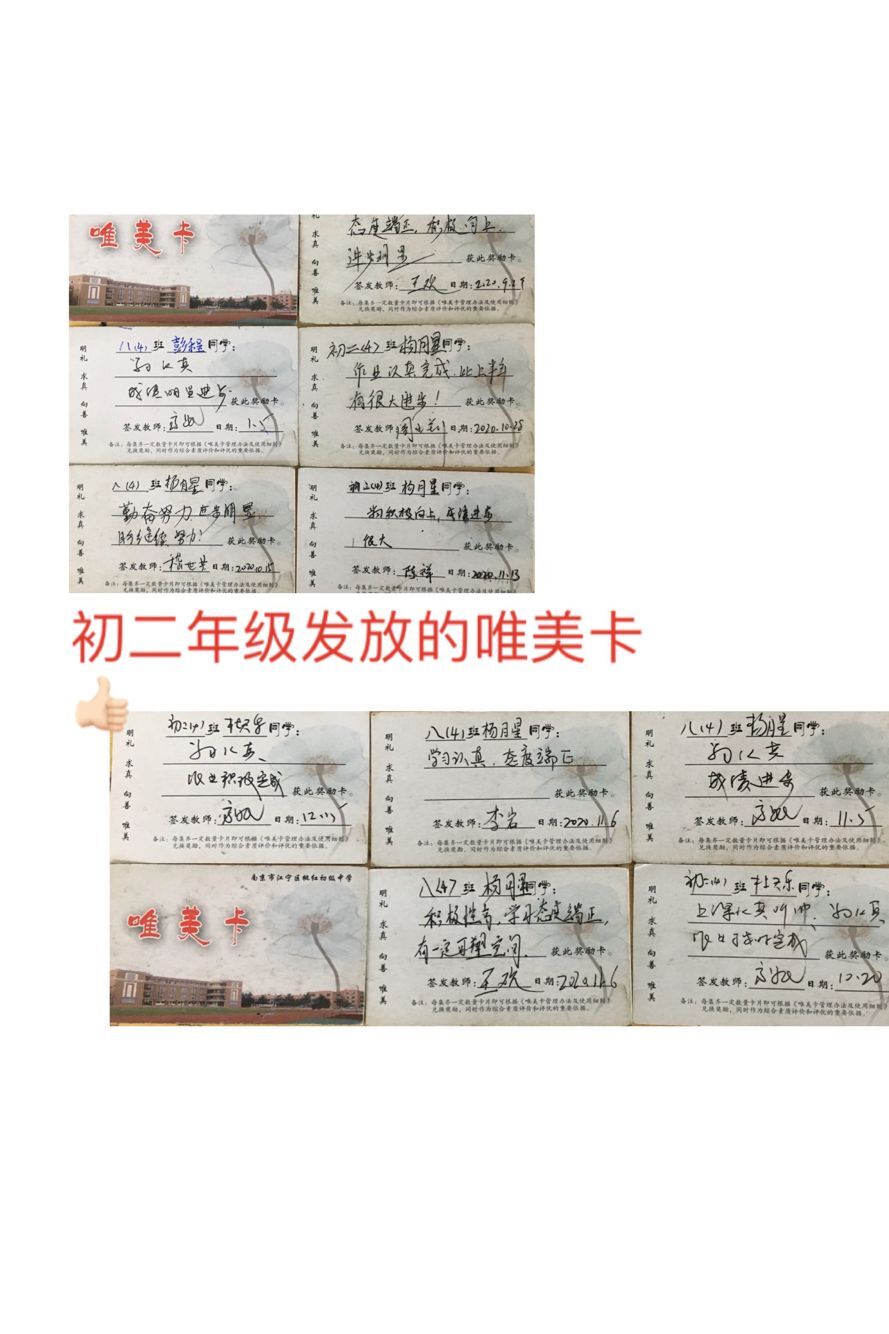 唯美卡
态度端正，积极向上，
进步明显 获此奖励卡。
签发教师：王欢 日期：2020.9.29
备注：每集齐一定数量卡片即可根据《唯美卡管理办法及使用细则》
兑换奖励，同时作为综合素质评价和评优的重要依据。
明礼 求真 向善 唯美
八(4)班 彭程同学：
学习认真
成绩明显进步
获此奖励卡。
签发教师： 日期：1.5
备注：每集齐一定数量卡片即可根据《唯美卡管理办法及使用细则》
兑换奖励，同时作为综合素质评价和评优的重要依据。
明礼 求真 向善 唯美
初二(4)班 杨月星同学：
作业认真完成，比上半年
有很大进步！ 获此奖励卡。
签发教师： 日期：2020.10.28
备注：每集齐一定数量卡片即可根据《唯美卡管理办法及使用细则》
兑换奖励，同时作为综合素质评价和评优的重要依据。
明礼 求真 向善 唯美
八(4)班 杨月星同学：
勤奋努力，进步明显，
盼继续努力！ 获此奖励卡。
签发教师： 日期：2020.10.15
备注：每集齐一定数量卡片即可根据《唯美卡管理办法及使用细则》
兑换奖励，同时作为综合素质评价和评优的重要依据。
明礼 求真 向善 唯美
初二(4)班 杨月星同学：
积极向上，成绩进步
很大 获此奖励卡。
签发教师：陈祥 日期：2020.11.13
备注：每集齐一定数量卡片即可根据《唯美卡管理办法及使用细则》
初二年级发放的唯美卡
明礼 求真 向善 唯美
初二(4)班 同学：
学习认真、
作业积极完成 获此奖励卡。
签发教师： 日期：12.15
备注：每集齐一定数量卡片即可根据《唯美卡管理办法及使用细则》
兑换奖励，同时作为综合素质评价和评优的重要依据。
明礼 求真 向善 唯美
八(4)班 杨月星同学：
学习认真，态度端正
获此奖励卡。
签发教师：李岩 日期：2020.11.6
备注：每集齐一定数量卡片即可根据《唯美卡管理办法及使用细则》
兑换奖励，同时作为综合素质评价和评优的重要依据。
明礼 求真 向善 唯美
八(4)班 杨月星同学：
学习认真
成绩进步
获此奖励卡。
签发教师： 日期：11.5
备注：每集齐一定数量卡片即可根据《唯美卡管理办法及使用细则》
兑换奖励，同时作为综合素质评价和评优的重要依据。
南京市江宁区桃红初级中学
唯美卡
明礼 求真 向善 唯美
八(4)班 杨月星同学：
积极性高，学习态度端正，
有一定可塑空间。 获此奖励卡。
签发教师：王欢 日期：2020.11.6
备注：每集齐一定数量卡片即可根据《唯美卡管理办法及使用细则》
兑换奖励，同时作为综合素质评价和评优的重要依据。
明礼 求真 向善 唯美
初二(4)班 杜天乐同学：
上课认真听讲、学习认真
作业按时完成 获此奖励卡。
签发教师： 日期：10.20
备注：每集齐一定数量卡片即可根据《唯美卡管理办法及使用细则》
兑换奖励，同时作为综合素质评价和评优的重要依据。